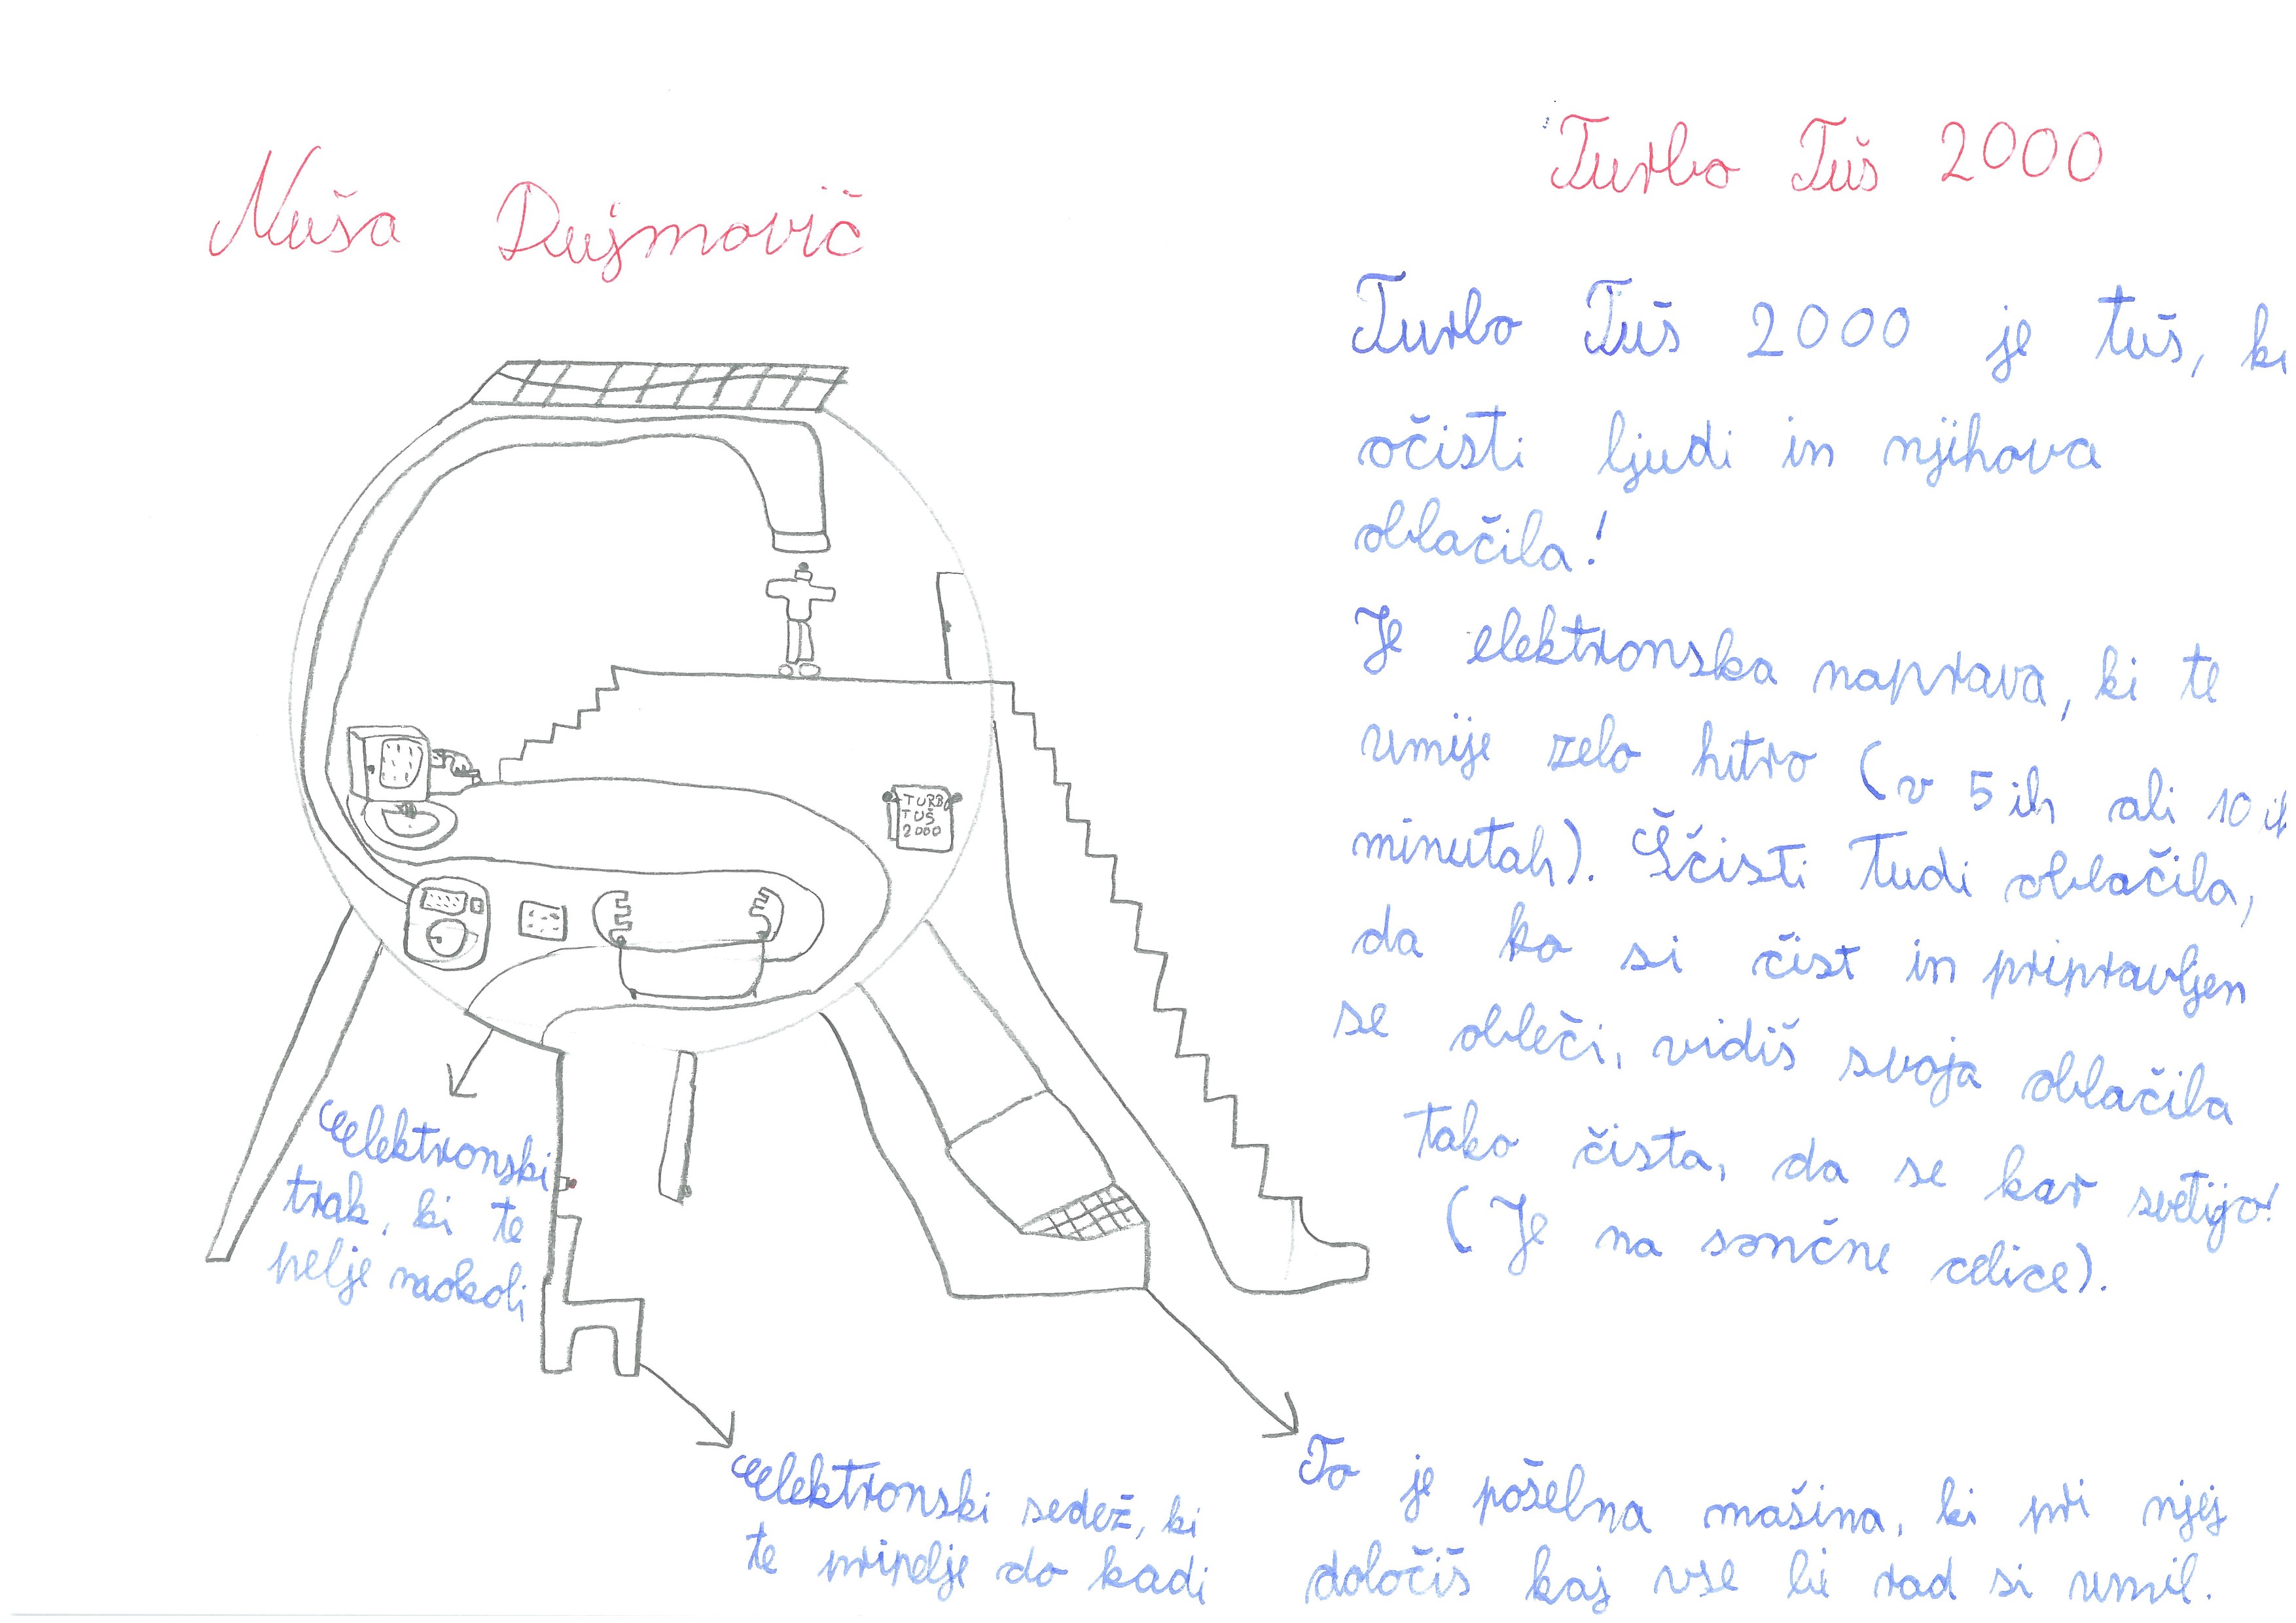 Nuša Dujmovič
Turbo Tuš 2000
Turbo Tuš 2000 je tuš, ki
očisti ljudi in njihova
oblačila!
Je elektronska naprava, ki te
umije zelo hitro (v 5ih ali 10ih
minutah). Ščisti tudi oblačila,
da ko si čist in pripravljen
se obleči, vidiš svoja oblačila
tako čista, da se kar svetijo!
(Je na sončne celice).
TURBO
TUŠ
2000
Elektronski
trak, ki te
pelje naokoli
Elektronski sedež, ki
te pripelje do kadi
To je pošelna mašina, ki pri njej
določiš kaj vse bi rad si umil.